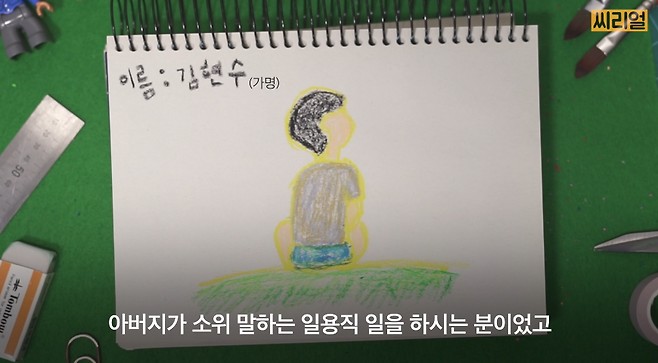 씨리얼
이름 : 김현수 (가명)
50
Tombow
아버지가 소위 말하는 일용직 일을 하시는 분이었고